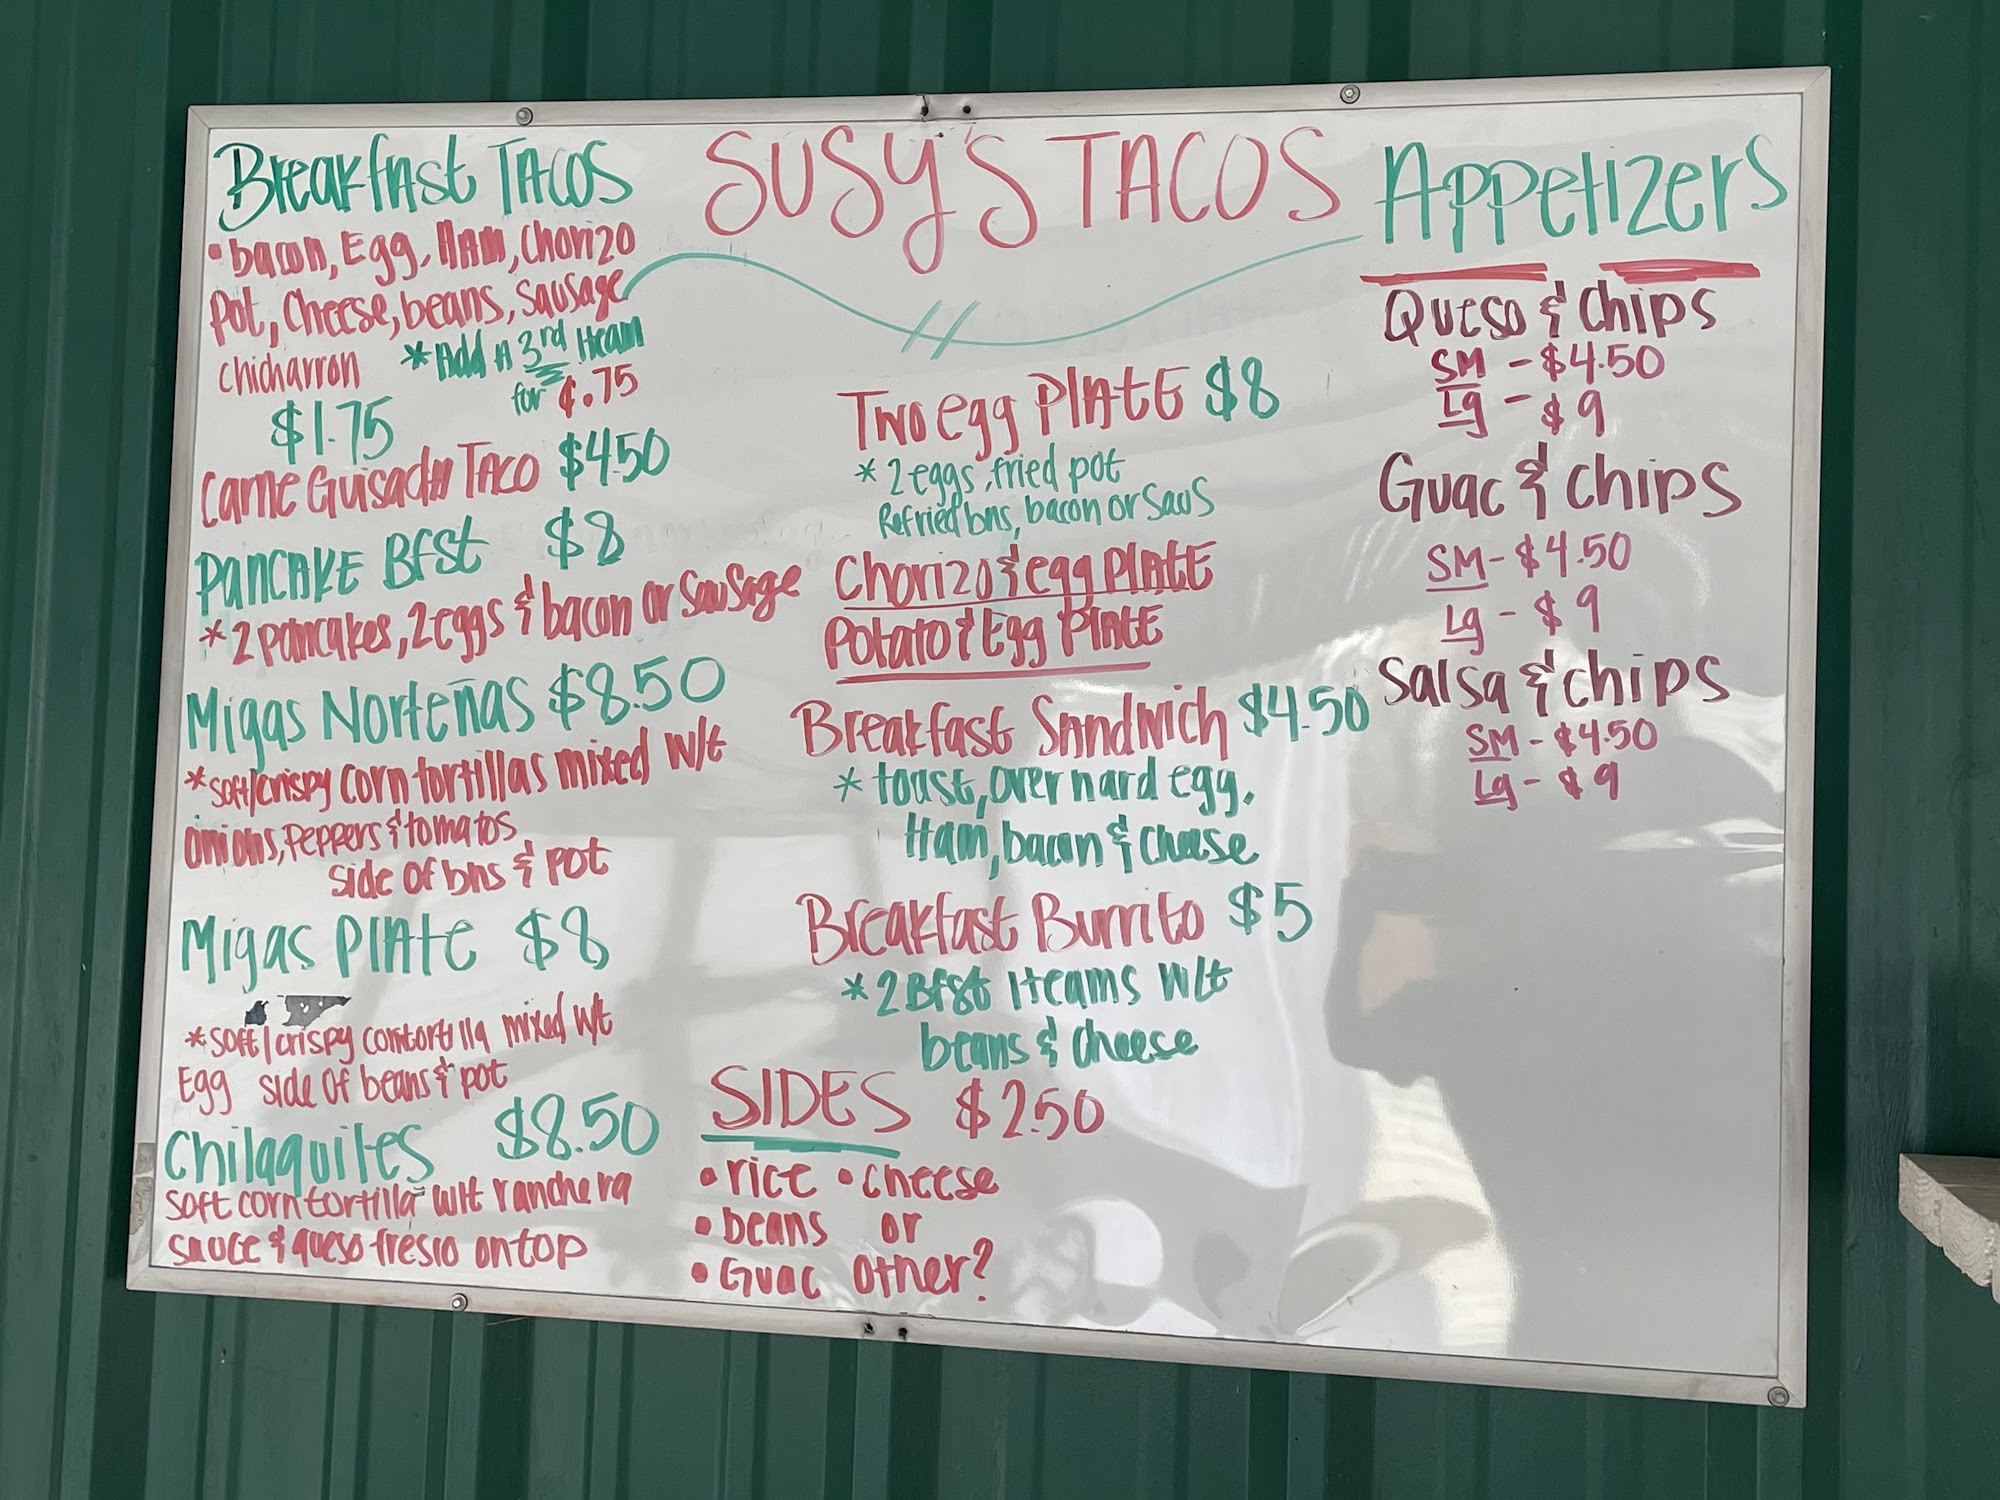 SUSY'S TACOS
Breakfast TACOS
• bacon, Egg, HAM, Chorizo
Pot, Cheese, beans, Sausage
chicharron
* Add A 3rd Iteam
for $.75
$1.75
Carne Guisada TACO $4.50
PANCAKE Bfst $8
* 2 pancakes, 2 eggs & bacon or Sausage
Migas Norteñas $8.50
* soft/crispy corn tortillas mixed w/t
onions, Peppers & tomatos
side of bns & pot
Migas PlAte $8
* soft/crispy corn tortilla mixed w/t
Egg side of beans & pot
Chilaquiles $8.50
soft corn tortilla w/t ranchera
sauce & queso fresco on top
Two egg PlAtE $8
* 2 eggs, fried pot
Refried bns, bacon or Saus
Chorizo & egg PlAtE
Potato & Egg PlAtE
Breakfast Sandwich $4.50
* toast, over hard egg,
Ham, bacon & cheese
Breakfast Burrito $5
* 2 Bfst Iteams w/t
beans & cheese
SIDES $2.50
• rice • cheese
• beans or
• Guac other?
Appetizers
Queso & chips
SM - $4.50
Lg - $9
Guac & chips
SM - $4.50
Lg - $9
Salsa & chips
SM - $4.50
Lg - $9